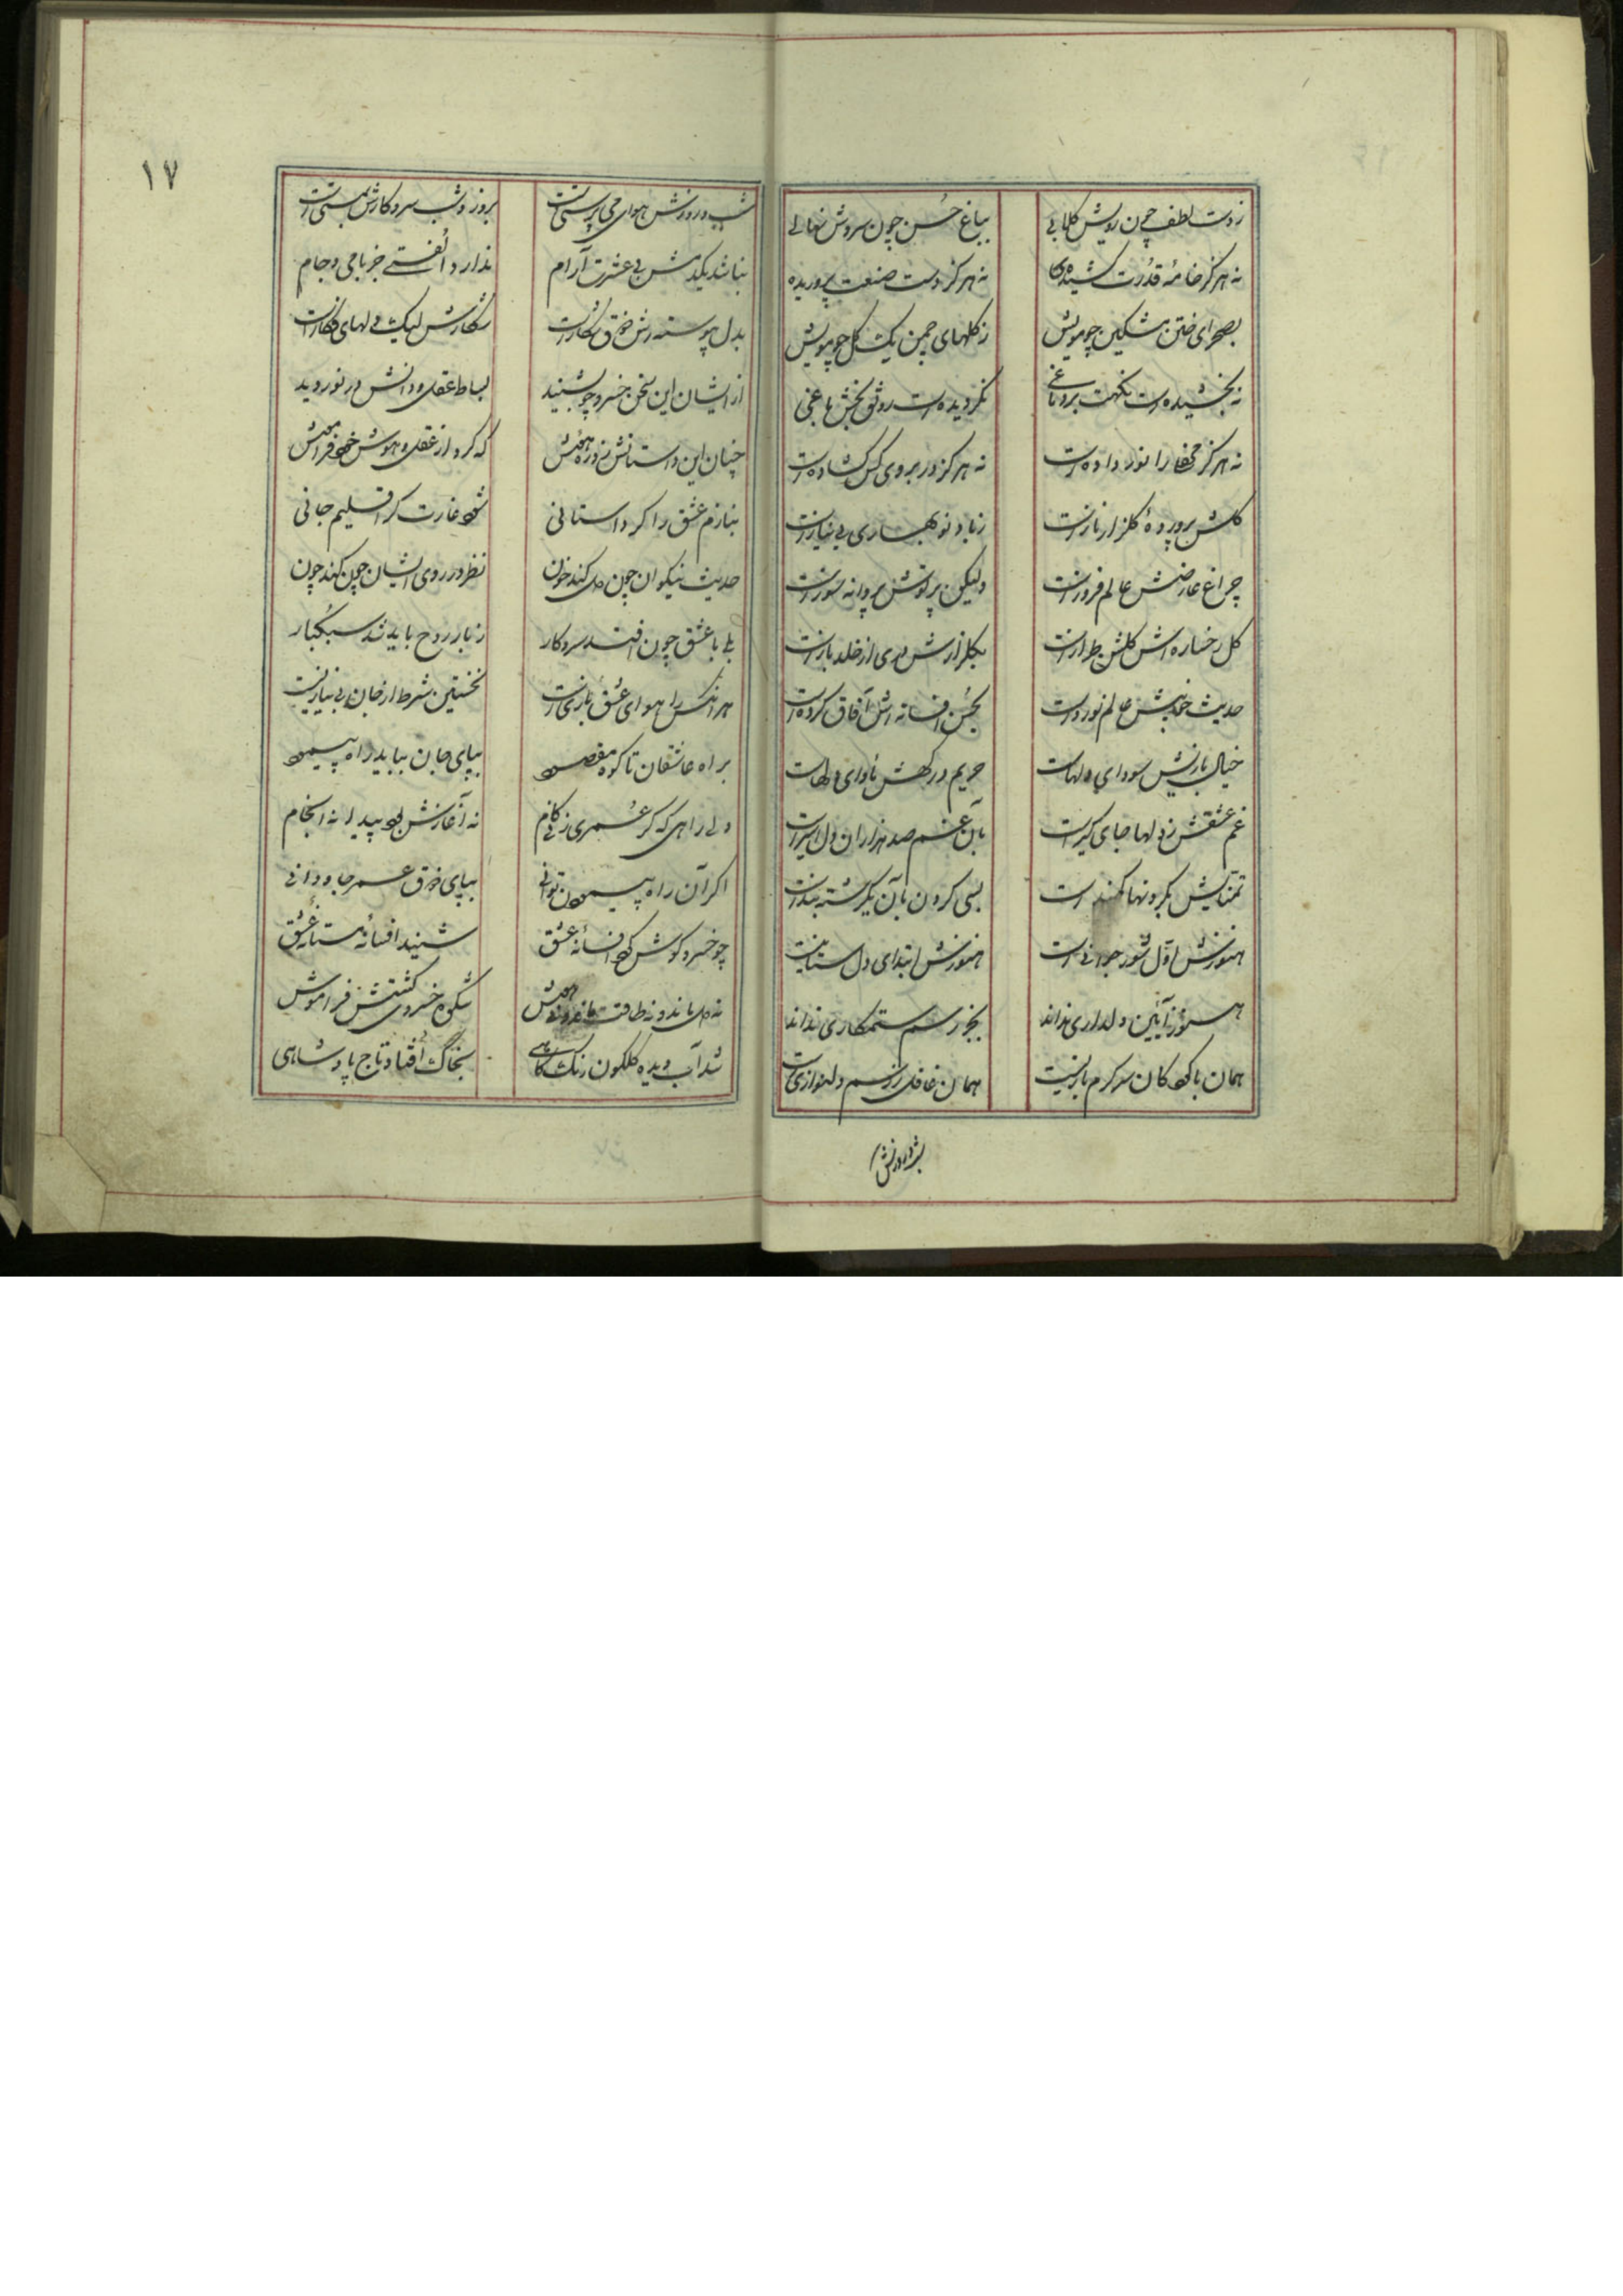 ز دست لطف چون رویش گلابی بباغ حسن چون سروش نهالی
نه هرگز خامهٔ قدرت کشیده نه هرگز دست صنعت پروریده
بصحرای ختن مشکین چو مویش ز گلهای چمن یک گل چو رویش
نه بخشیده است نکهت بر دماغی نگردیده است رونق بخش باغی
نه هرگز محفلی را نور داده است نه هرگز در بروی کس گشاده است
گلش پروردهٔ گلزار نازست ز باد نوبهاری بی نیازست
چراغ عارضش عالم فروزست ولیکن پرتوش پروانه سوزست
گل رخساره اش گلشن طرازست بگلزارش دری از خلد بازست
حدیث خوبیش عالم نوردست بحسن افسانه اش آفاق کردست
خیال نازنیش سودای دلهاست حریم درگهش ماوای دلهاست
غم عشقش ز دلها جای گیرست بآن غم صد هزاران دل اسیرست
تمنایش بگردنها کمندست بسی گردن بآن یک رشته بندست
هنوزش اول شور جوانی است هنوزش ابتدای دل ستانیست
هنوز آیین دلداری نداند بجز رسم ستمکاری نداند
همان با کودکان سرگرم بازیست همان غافل ز رسم دلنوازیست
شب و روزش
۱۷
شب و روزش هوای می پرستی است بروز و شب سر و کارش بمستی است
نباشد یکدمش بی عشرت آرام ندارد الفتی جز با می و جام
بدل پیوسته اش ذوق شکارست شکارش لیک دلهای فکارست
از ایشان این سخن خسرو چو بشنید بساط عقل و دانش در نوردید
چنان این داستانش زد ره هوش که کرد از عقل و هوش خود فراموش
بنازم عشق را کز داستانی شود غارت گر اقلیم جانی
حدیث نیکوان چون دل کند خون نظر در روی ایشان چون کند چون
بلی با عشق چون افتد سر و کار ز بار روح باید شد سبکبار
هر آنکس را هوای عشق بازیست نخستین شرط از جان بی نیازیست
براه عاشقان تا کوه مقصود بپای جان بباید راه پیمود
ولی راهی که گر عمری زنی گام نه آغازش بود پیدا نه انجام
اگر آن راه پیمودن توانی بپای ذوق عمر جاودانی
چو خسرو گوش کرد افسانهٔ عشق شنید افسانهٔ مستانهٔ عشق
نه دل ماند و نه طاقت ماند و نه هوش شکوه خسروی گشتش فراموش
شد آب دیده گلگون رنگ کاهی بخاک افتاد تاج پادشاهی